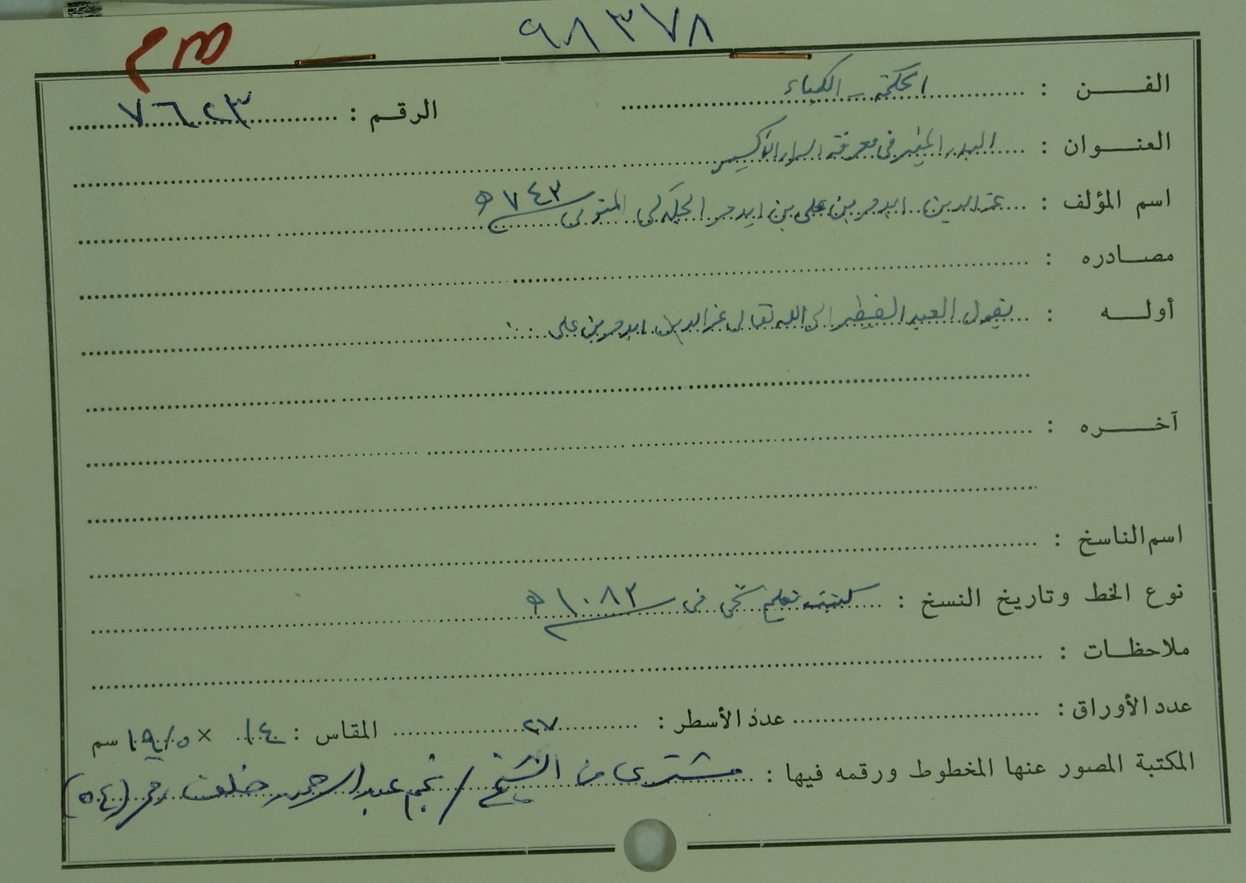 ٩٨٣٧٨
الفـــن : الحكمة - الكيمياء الرقم : ٧٦٢٣
العنـــوان : البدر المنير في معرفة اسرار الاكسير
اسم المؤلف : عز الدين ايدمر بن علي بن ايدمر الجلدكي المتوفى ٧٤٣ هـ
مصـــادره :
أولـــه : يقول العبد الفقير الى الله تعالى عز الدين ايدمر بن علي ...
آخـــره :
اسم الناسخ :
نوع الخط وتاريخ النسخ : كتبت بقلم نسخي في ١٠٨٢ هـ
ملاحظـات :
عدد الأوراق : عدد الأسطر : ٢٧ المقاس : ١٤ × ١٩/٥ سم
المكتبة المصور عنها المخطوط ورقمه فيها : مشترى من الشيخ / نجم عبد الرحمن خلف رقم (٥٤)